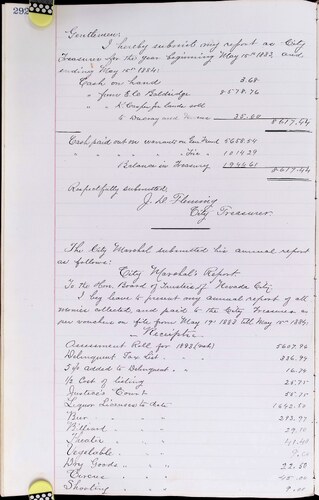 292
Gentlemen:
I hereby submit my report as City
Treasurer for the year beginning May 15th 1883, and
ending May 15th 1884:
Cash on hand 3.68
" from E. G. Baldridge 8578.76
" " for lands sold
to 35.00 8617.44
Cash paid out on warrants on Gen Fund 5658.54
" " " " " Fire " 1014.29
Balance in Treasury 1944.61
8617.44
Respectfully submitted,
J. D. Fleming
City Treasurer
The City Marshal submitted his annual report
as follows:
City Marshal's Report
To the Hon. Board of Trustees of Nevada City.
I beg leave to present my annual report of all
monies collected, and paid to the City Treasurer as
per vouchers on file from May 19th 1883 till May 15th 1884.
Receipts
Assessment Roll for 1883 5602.96
Delinquent Tax List 236.97
5% added to Delinquent " " 16.74
1/2 Cost of Listing 25.75
Justice's Court 55.25
Liquor Licenses to date 1642.50
Beer " " " 212.97
Billiard " " " 29.10
Theatre " " " 41.40
Vegetable " " " 9.00
Dry Goods " " " 22.50
Circus " " " 45.00
Shooting " " " 9.00